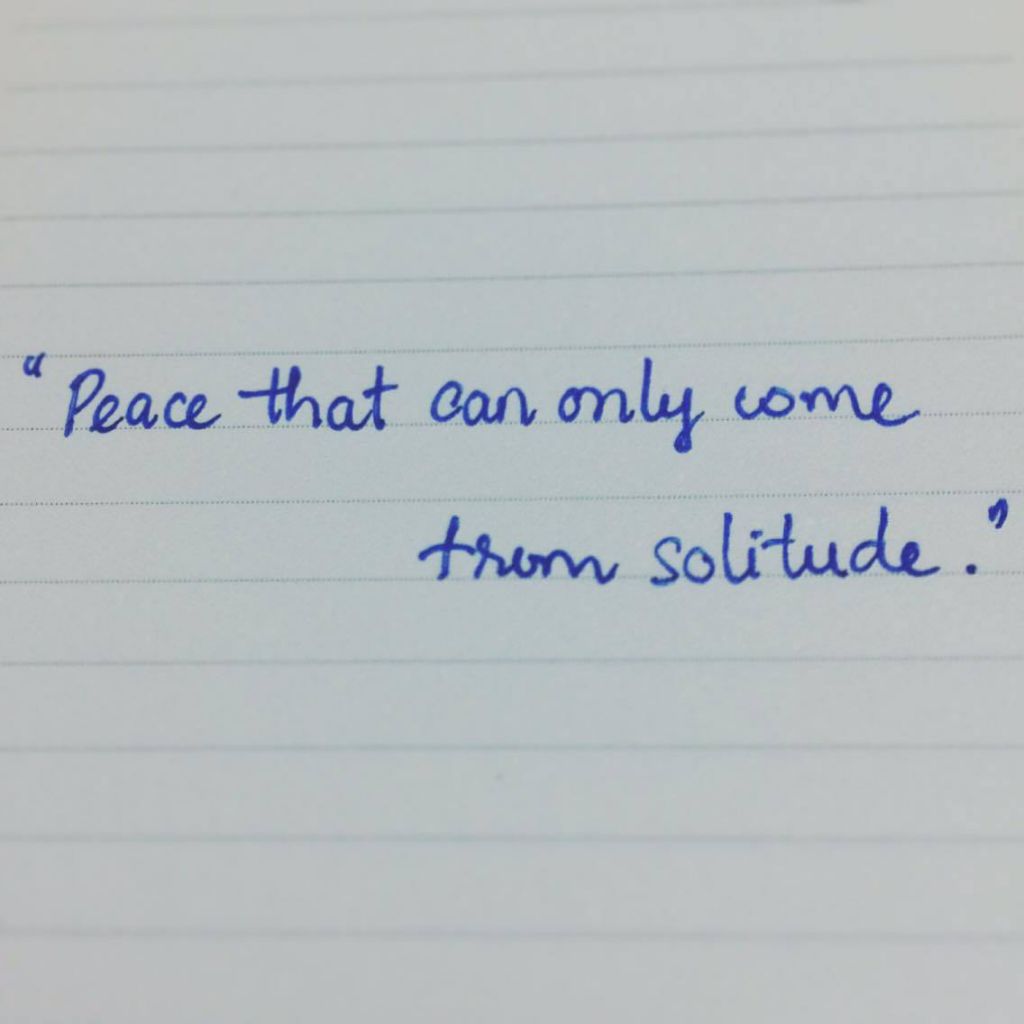 "Peace that can only come
from solitude."